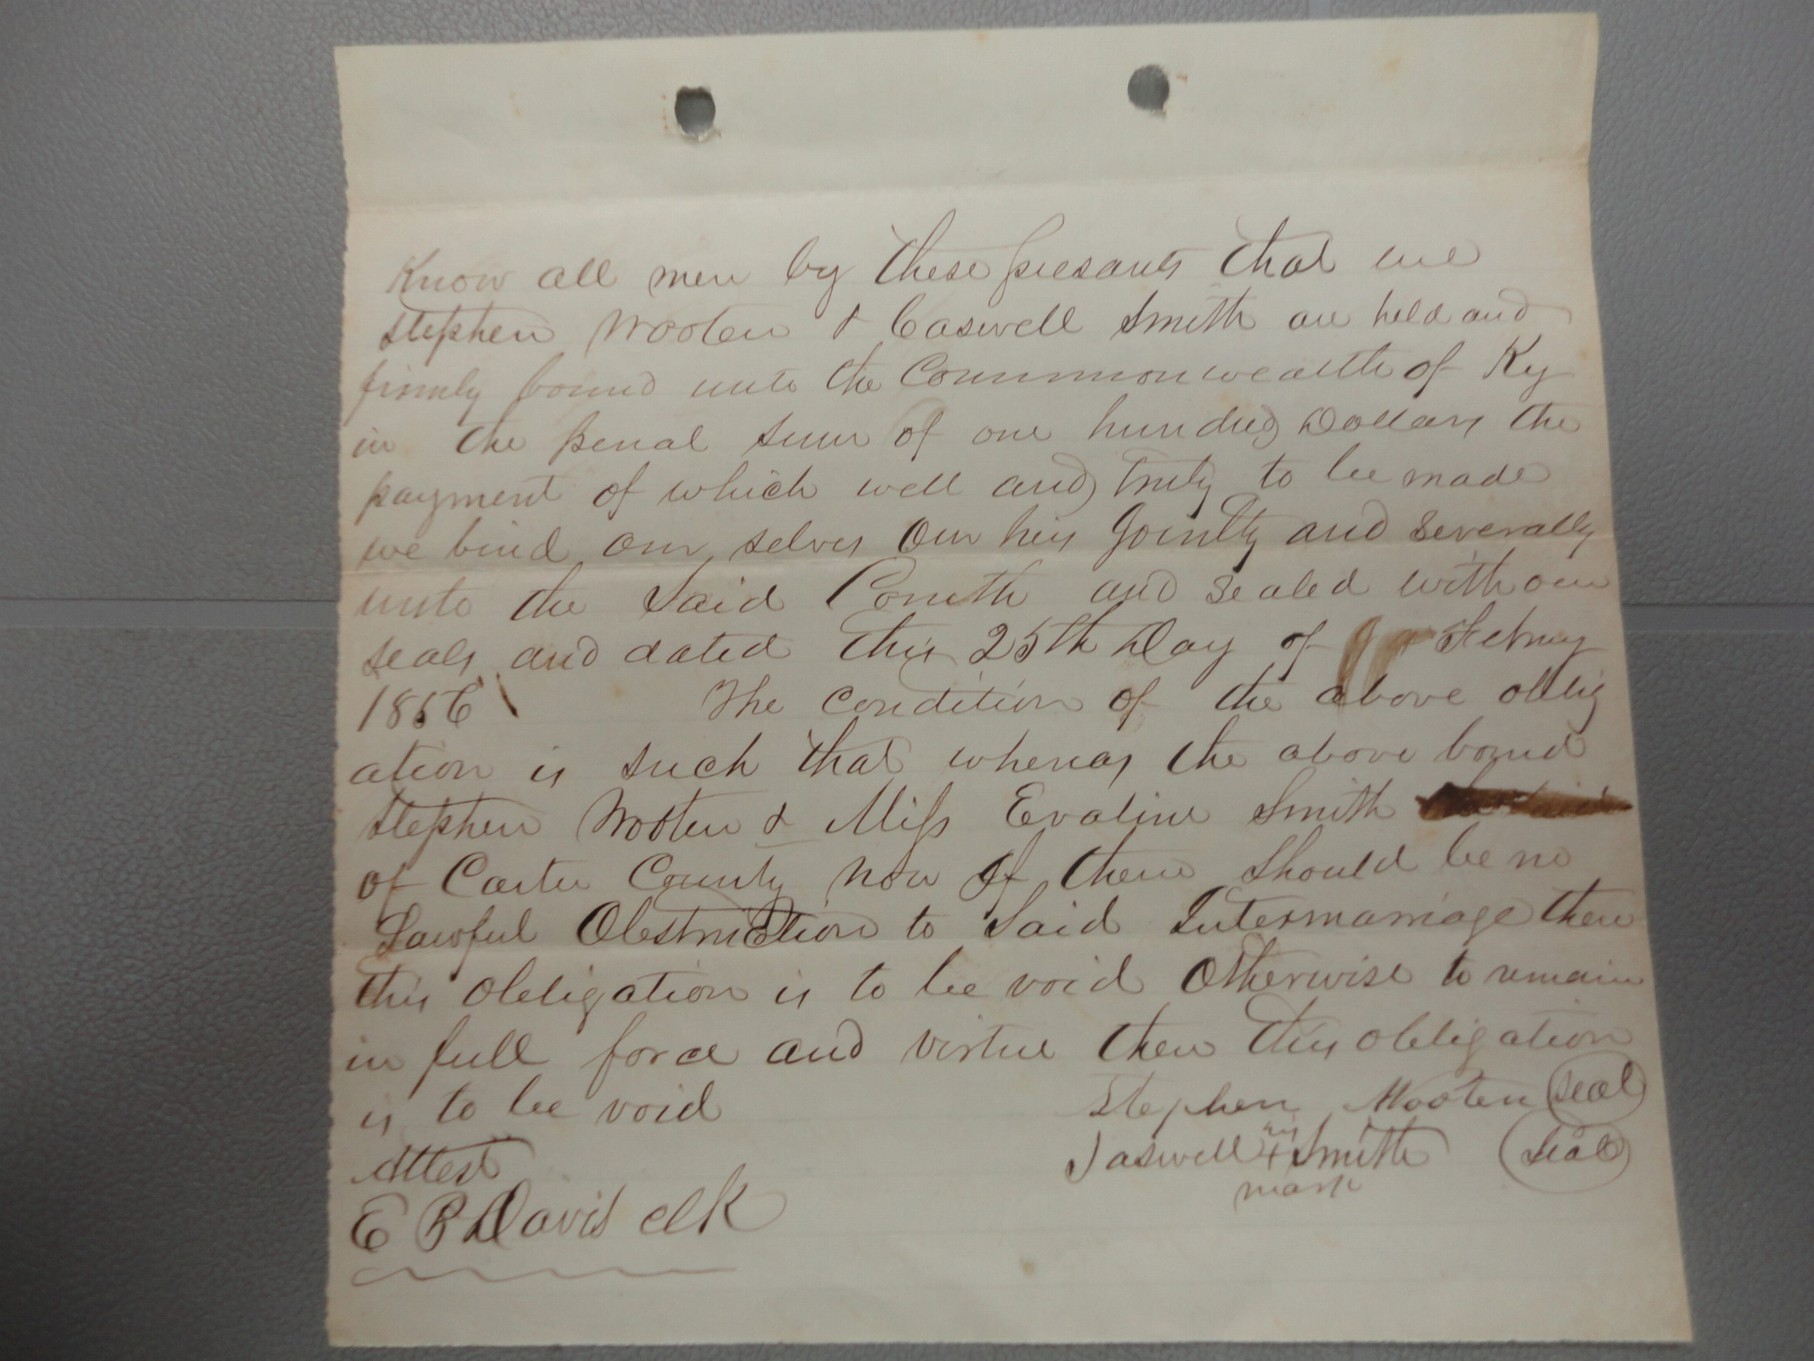 Know all men by these presants that we
Stephen Wooten & Caswell Smith are held and
firmly bound unto the Commonwealth of Ky
in the penal sum of one hundred Dollars the
payment of which well and truly to be made
we bind our selves our heirs Jointly and severally
unto the Said Comth and sealed with our
seals and dated this 25th Day of Febuay
1856 The condition of the above oblig
ation is such that whereas the above bound
Stephen Wooten & Miss Evaline Smith
of Carter County now If there should be no
Lawful Obstruction to Said Intermarriage then
this obligation is to be void Otherwise to remain
in full force and virtue then this obligation
is to be void
Stephen Wooten Seal
Caswell his x Smith Seal
mark
Attest
E P Davis clk